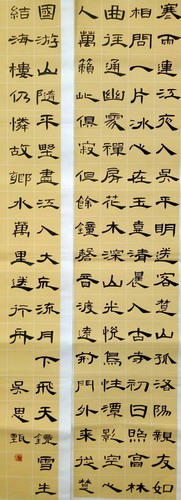 寒雨連江夜入吳平明送客楚山孤洛陽親友如
相問一片冰心在玉壺清晨入古寺初日照高林
曲徑通幽處禪房花木深山光悅鳥性潭影空心
人萬籟此俱寂但餘鐘磬音渡遠荊門外來從楚
國游山隨平野盡江入大荒流月下飛天鏡雲生
結海樓仍憐故鄉水萬里送行舟 吳思甄